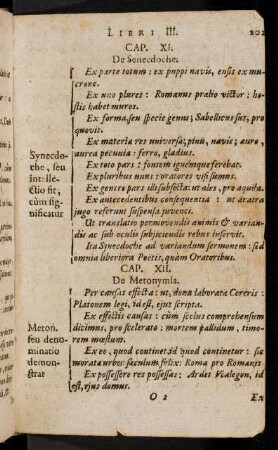 LIBRI III.
CAP. XI.
De Senecdoche.
Ex parte totum: ex puppi navis, ensis ex mu-
crone.
Ex uno plures: Romanus prælio victor: ho-
stis habet muros.
Ex forma, seu specie genus; Sabellicus sus, pro
quovis.
Ex materia res universa; pinu, navis; auro,
aurea pecunia: ferro, gladius.
Ex toto pars: fontem ignémque ferebat.
Ex pluribus unus: oratores visi sumus.
Ex genere pars illi subjecta: ut ales, pro aquila.
Ex antecedentibus consequentia: ut aratra
jugo referunt suspensa juvenci.
Ut translatio permovendis animis & variandis
ac sub oculis subjiciendis rebus inservit.
Ita Synecdoche ad variandum sermonem: sed
omnia liberiora Poëtis, quàm Oratoribus.
Synecdo-
che, seu
intelle-
ctio fit,
cùm sig-
nificatur
CAP. XII.
De Metonymia.
Per causas effecta: ut, dona laborata Cereris:
Platonem legi, id est, ejus scripta.
Ex effectis causas: cùm scelus comprehensum
dicimus, pro scelerato: mortem pallidum, timo-
rem mœstum.
Ex eo, quod continet, id quod continetur: sic
moratæ urbes: sæculum felix: Roma pro Romanis.
Ex possessore res possessas: Ardet Ucalegon, id
est, ejus domus.
Meton.
seu deno-
minatio
demon-
strat
O 2
Ex